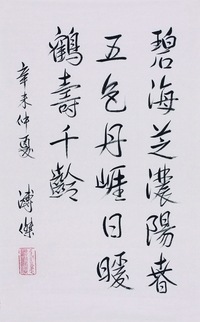 碧海芝濃陽春
五色丹崖日暖
鶴壽千齡
辛未仲夏
溥傑